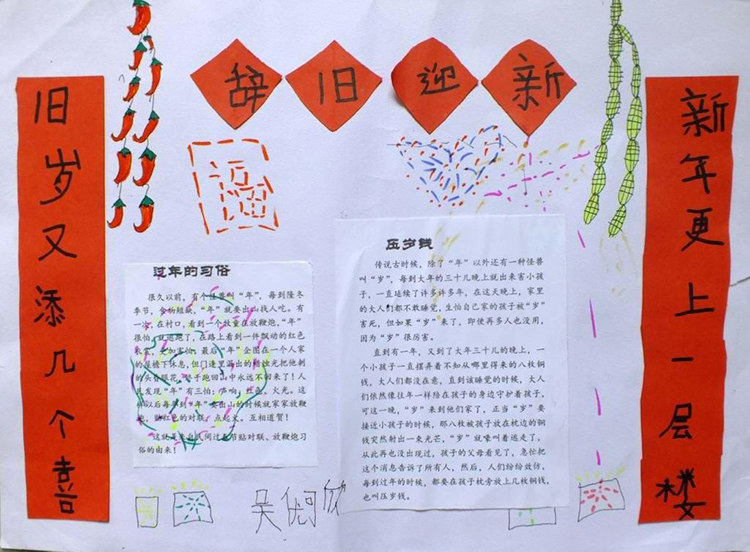 辞旧迎新
旧岁又添几个喜
新年更上一层楼
福
过年的习俗
很久以前，有个怪兽叫“年”，每到隆冬
季节，食物短缺，“年”就要出山找人吃。有
一次，在村口，看到一个牧童在放鞭炮，“年”
很怕，就逃跑了，在路上看到一件飘动的红色
更加害怕。最后“年”企图在一个人家
的屋檐下休息，但门缝里漏出的烛光把他刺
的头昏眼花，终于跑回山中永远不回来了！人
们发现“年”有三怕：声响，红色，火光。这
样以后每年到“年”要出山的时候就家家放鞭
炮，贴红色的对联，点起火。互相道贺！
这就是来自民间过春节贴对联、放鞭炮习
俗的由来！
压岁钱
传说古时候，除了“年”以外还有一种怪兽
叫“岁”，每到大年的三十儿晚上就出来害小孩
子，一直延续了许多许多年，在这天晚上，家里
的大人们都不敢睡觉，生怕自己家的孩子被“岁”
害死，但如果“岁”来了，即使再多人也没用，
因为“岁”很厉害。
直到有一年，又到了大年三十儿的晚上，一
个小孩子一直摆弄着不知从哪里得来的八枚铜
钱，大人们都没在意，直到该睡觉的时候，大人
们依然像往年一样陪在孩子的身边守护着孩子，
可这一晚，“岁”来到他们家了，正当“岁”要
接近小孩子的时候，那八枚被孩子放在枕边的铜
钱突然射出一来光芒，“岁”就嚎叫着逃走了，
从此再也没出现过，孩子的父母看见了，急忙把
这个消息告诉了所有人，然后，人们纷纷效仿，
每到过年的时候，都要在孩子枕旁放上几枚铜钱，
也叫压岁钱。
吴